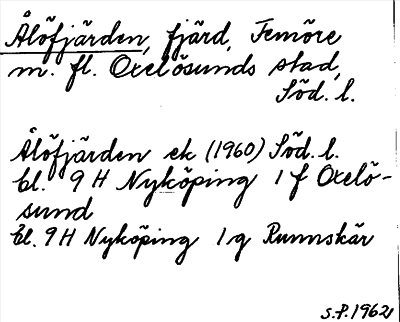 Ålöfjärden, fjärd, Femöre
m. fl. Oxelösunds stad,
Söd. l.
Ålöfjärden ek (1960) Söd. l.
bl. 9 H Nyköping 1 f Oxelö-
sund
bl. 9 H Nyköping 1 g Runnskär
S.P. 1962